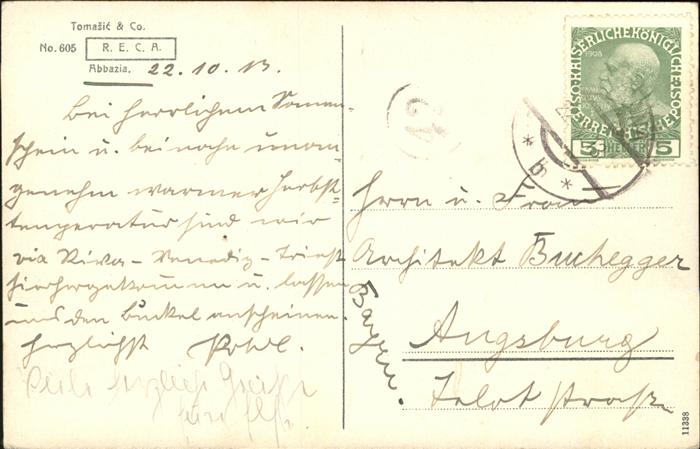 Tomašić & Co.
No. 605 R. E. C. A.
Abbazia. 22.10.13.
Bei herrlichem Sonnen-
schein u. bei nahe unan-
genehm warmer Herbst-
temperatur sind wir
via Riva - Venedig - Triest
hierhergekommen u. lassen
uns den Buckel anscheinen.
Herzlichst
herzliche Grüße
42
KAISERLICHEKÖNIGLICHE
1908
ÖSTERREICHISCHE POST
5 HELLER 5
* b *
Herrn u. Frau
Architekt Buchegger
Augsburg
Bayern.
11338